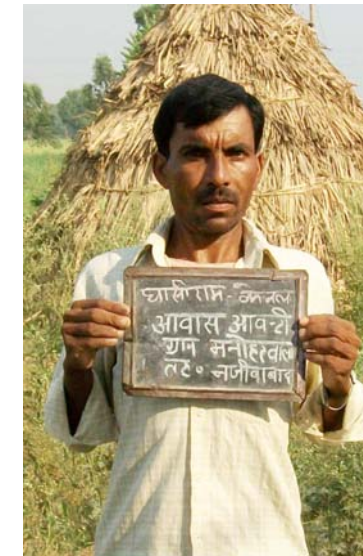 घासीराम -
आवास आवन्टी
ग्राम मनोहरवाला
तह० नजीबाबाद